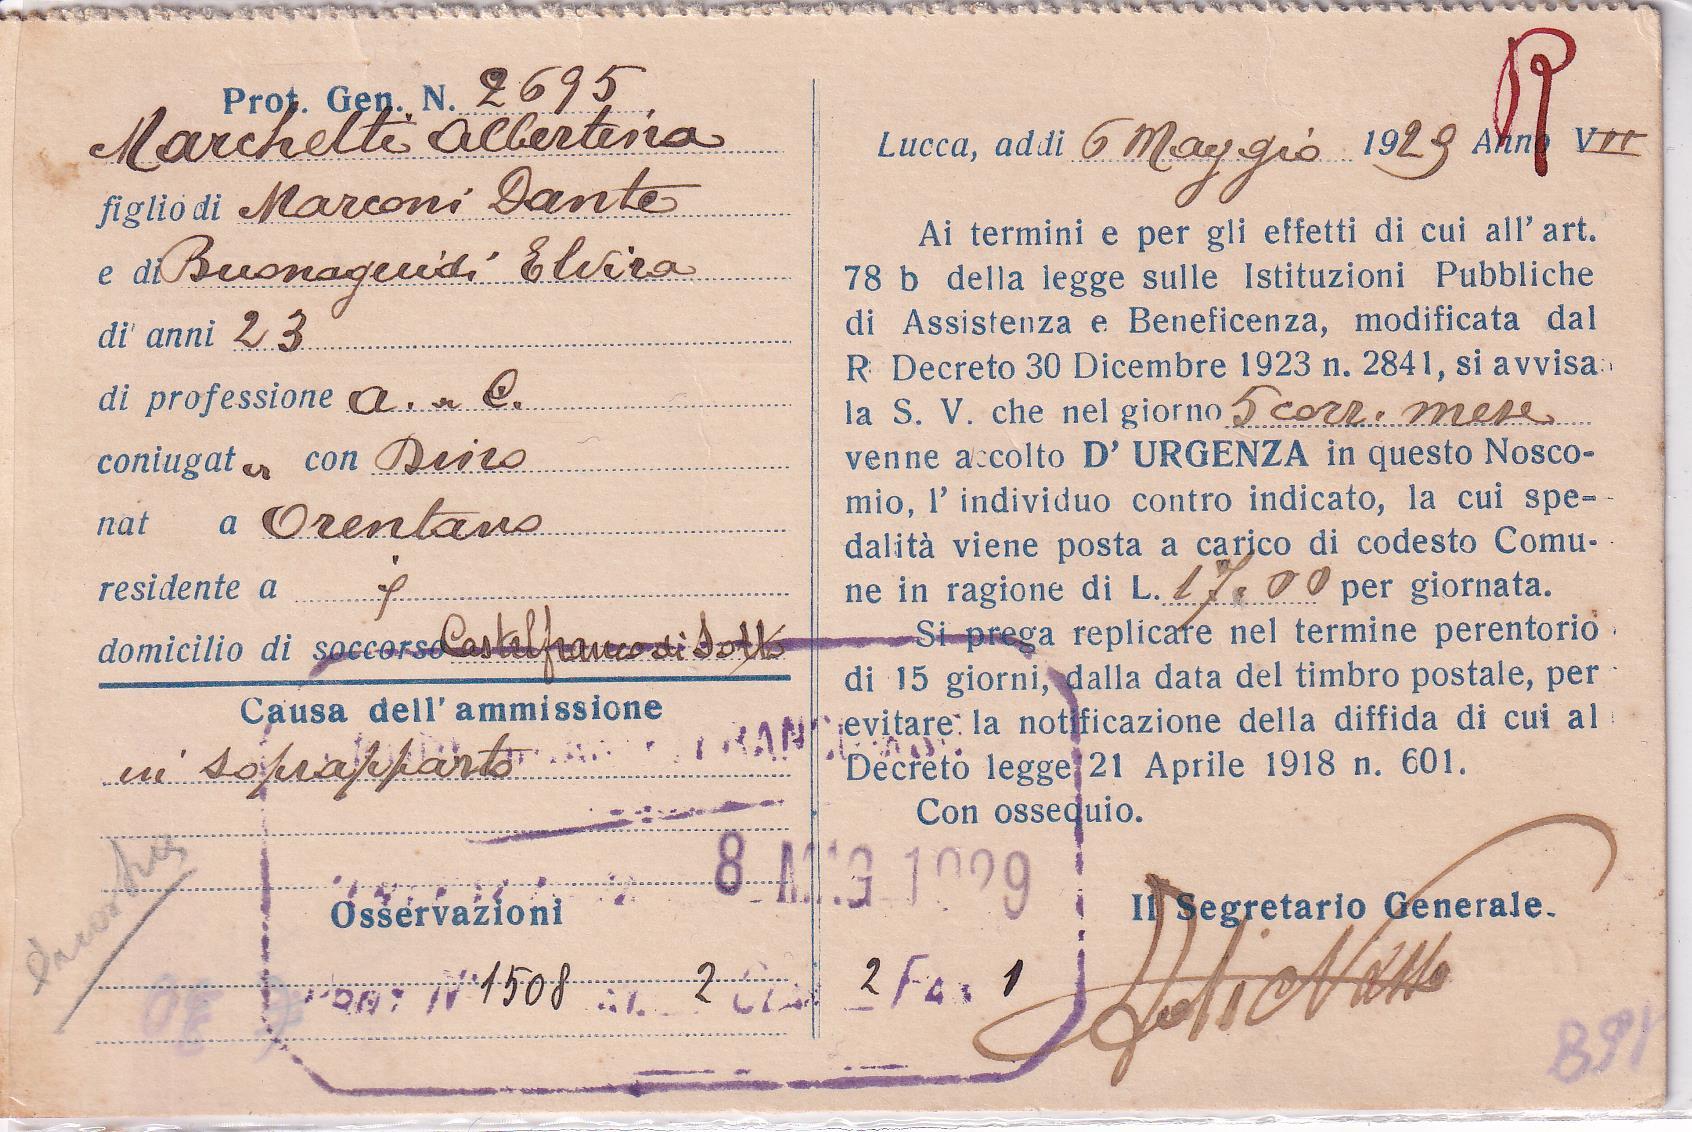 Prot. Gen. N. 2695
Marchetti Albertina
figlio di Marconi Dante
e di Buonaguidi Elvira
di anni 23
di professione a. a C.
coniugata con Dino
nat a Orentano
residente a
domicilio di soccorso Castelfranco di Sotto
Causa dell'ammissione
in soprapparto
Osservazioni
R
Lucca, addi 6 Maggio 1929 Anno VII
Ai termini e per gli effetti di cui all'art.
78 b della legge sulle Istituzioni Pubbliche
di Assistenza e Beneficenza, modificata dal
R Decreto 30 Dicembre 1923 n. 2841, si avvisa
la S. V. che nel giorno 5 corr. mese
venne accolto D'URGENZA in questo Nosco-
mio, l'individuo contro indicato, la cui spe-
dalità viene posta a carico di codesto Comu-
ne in ragione di L. 17.00 per giornata.
Si prega replicare nel termine perentorio
di 15 giorni, dalla data del timbro postale, per
evitare la notificazione della diffida di cui al
Decreto legge 21 Aprile 1918 n. 601.
Con ossequio.
Il Segretario Generale.
8 MAG 1929
N 1508 2 Clas 2 Fas 1